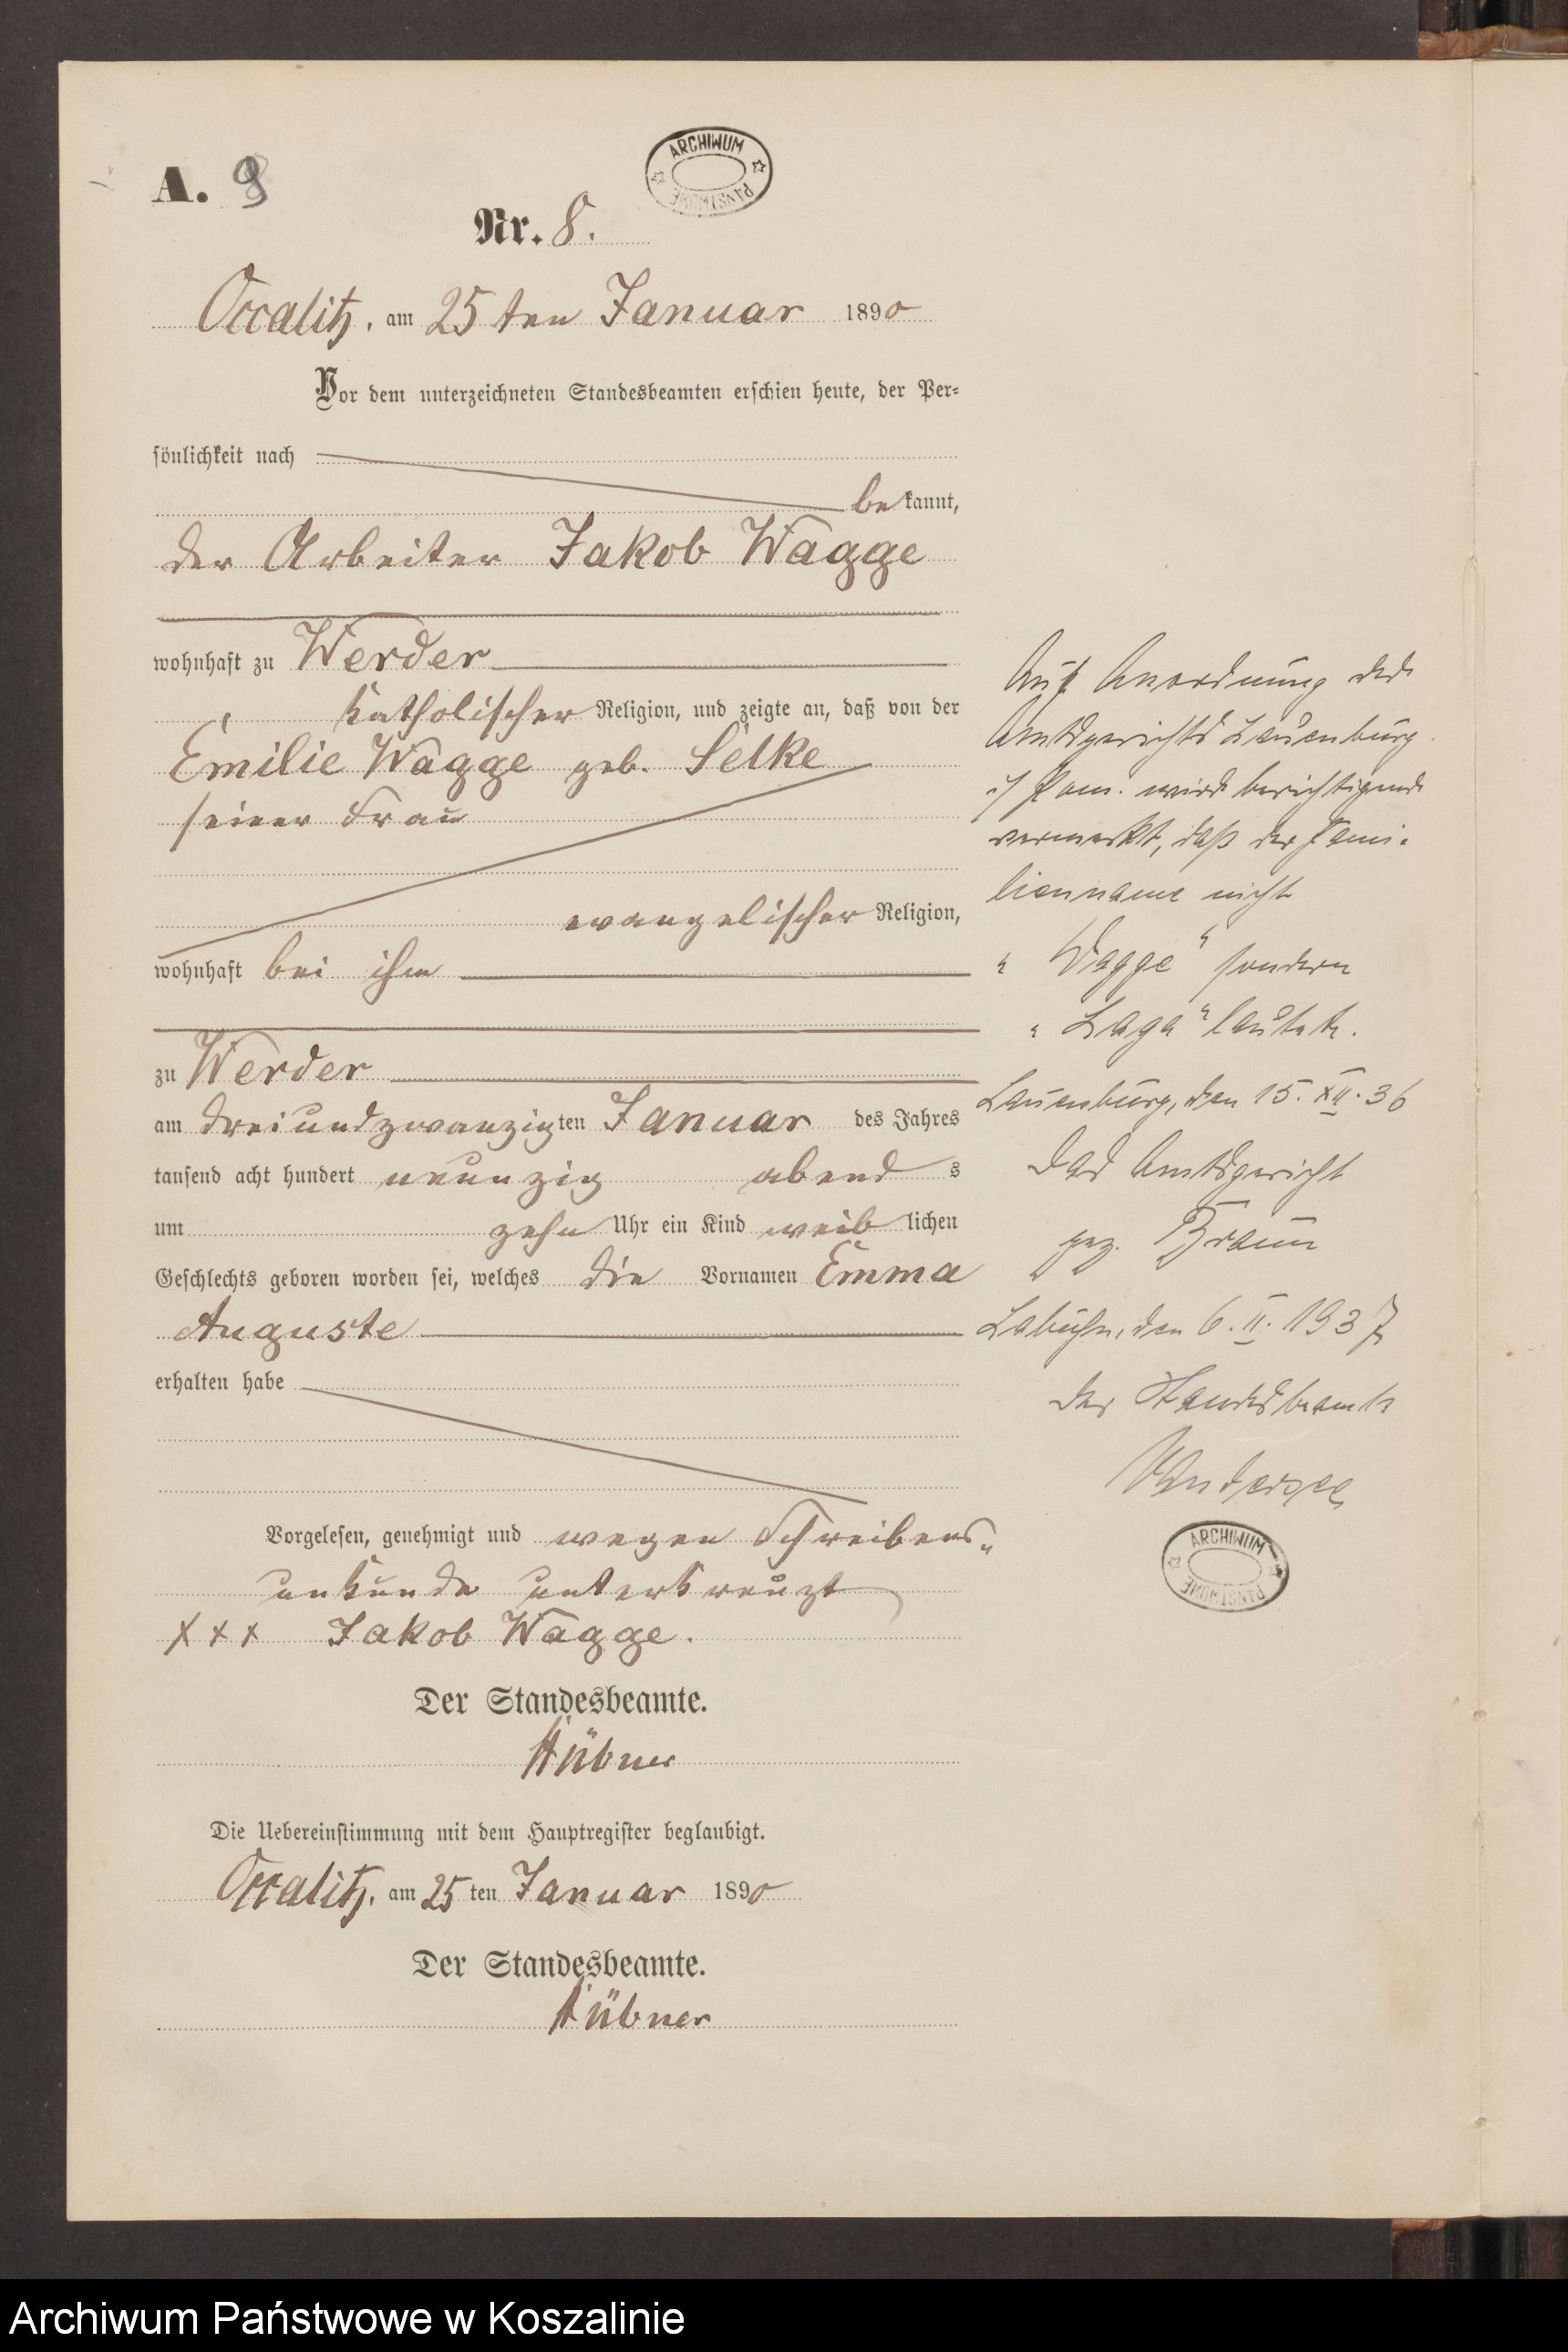 A. 9
ARCHIWUM PAŃSTWOWE
Nr. 8.
Occalitz, am 25 ten Januar 1890
Vor dem unterzeichneten Standesbeamten erschien heute, der Per-
sönlichkeit nach
bekannt,
der Arbeiter Jakob Wagge
wohnhaft zu Werder
katholischer Religion, und zeigte an, daß von der
Emilie Wagge geb. Selke
seiner Frau
evangelischer Religion,
wohnhaft bei ihm
zu Werder
am dreiundzwanzigten Januar des Jahres
tausend acht hundert neunzig abends
um zehn Uhr ein Kind weiblichen
Geschlechts geboren worden sei, welches die Vornamen Emma
Auguste
erhalten habe
Vorgelesen, genehmigt und wegen Schreibens-
unkunde unterkreuzt
XXX Jakob Wagge.
Der Standesbeamte.
Hübner
Die Uebereinstimmung mit dem Hauptregister beglaubigt.
Occalitz, am 25 ten Januar 1890
Der Standesbeamte.
Hübner
Auf Anordnung des
Amtsgerichts Lauenburg
i/ Pom. wird berichtigend
vermerkt, daß der Fami-
lienname nicht
"Wagge" sondern
"Laga" lautete.
Lauenburg, den 15. XII. 36
Das Amtsgericht
gez. Braun
Labuhn, den 6. II. 1937
Der Standesbeamte
ARCHIWUM PAŃSTWOWE
Archiwum Państwowe w Koszalinie